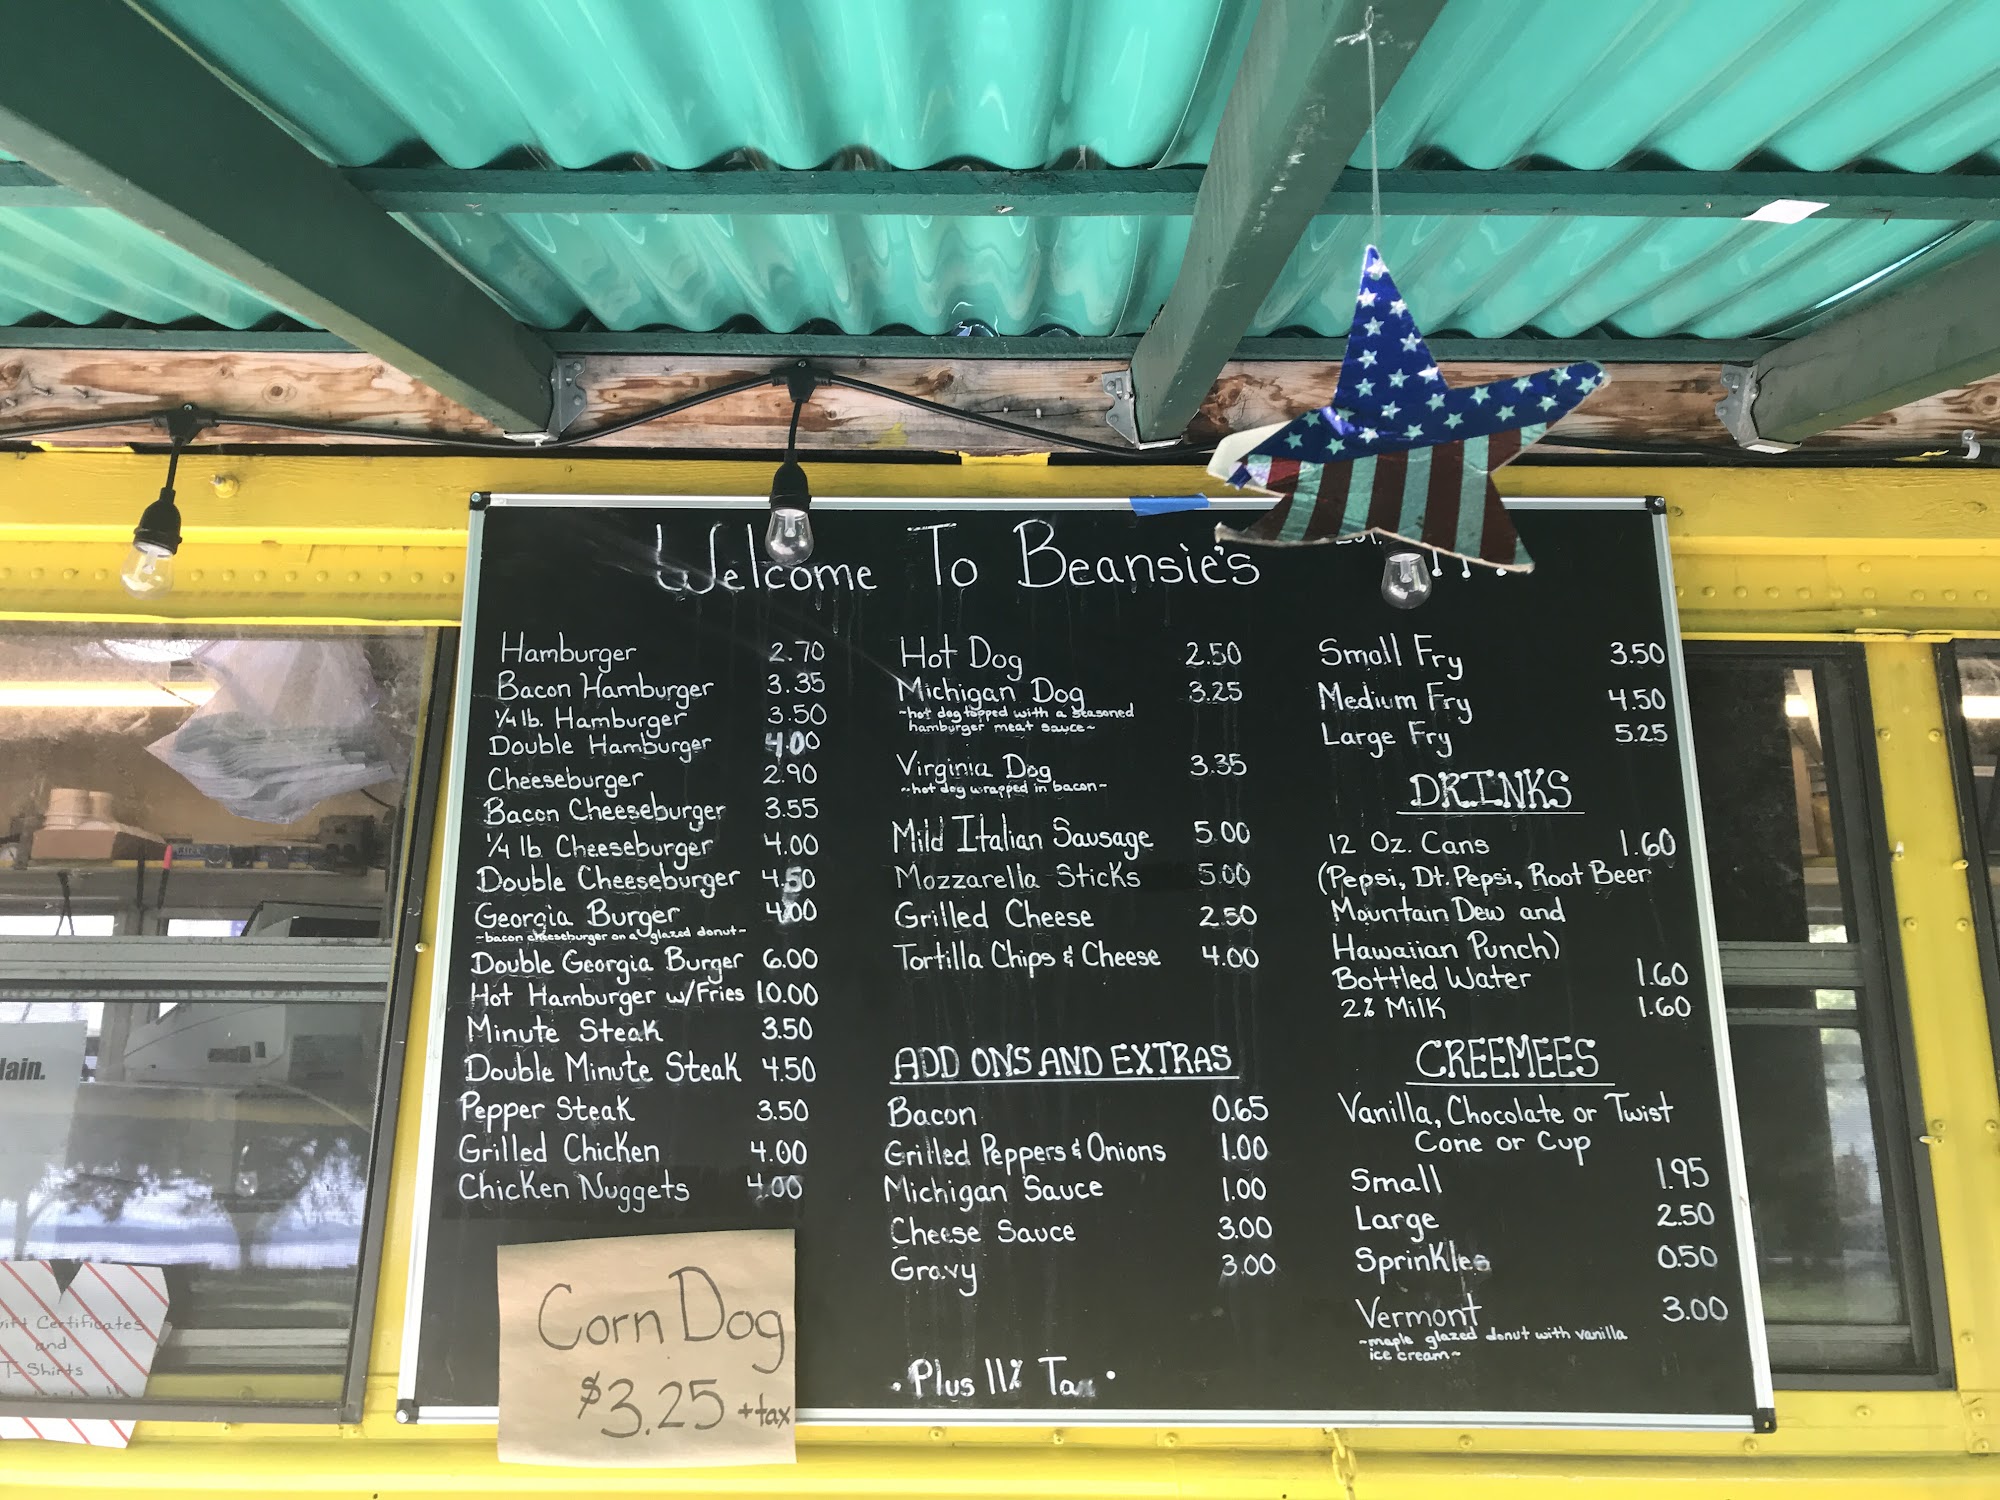 Welcome To Beansie's
Hamburger 2.70
Bacon Hamburger 3.35
1/4 lb. Hamburger 3.50
Double Hamburger 4.00
Cheeseburger 2.90
Bacon Cheeseburger 3.55
1/4 lb Cheeseburger 4.00
Double Cheeseburger 4.50
Georgia Burger 4.00
~bacon cheeseburger on a glazed donut~
Double Georgia Burger 6.00
Hot Hamburger w/Fries 10.00
Minute Steak 3.50
Double Minute Steak 4.50
Pepper Steak 3.50
Grilled Chicken 4.00
Chicken Nuggets 4.00
Corn Dog
$3.25 +tax
Hot Dog 2.50
Michigan Dog 3.25
~hot dog topped with a seasoned
hamburger meat sauce~
Virginia Dog 3.35
~hot dog wrapped in bacon~
Mild Italian Sausage 5.00
Mozzarella Sticks 5.00
Grilled Cheese 2.50
Tortilla Chips & Cheese 4.00
ADD ONS AND EXTRAS
Bacon 0.65
Grilled Peppers & Onions 1.00
Michigan Sauce 1.00
Cheese Sauce 3.00
Gravy 3.00
• Plus 11% Tax •
Small Fry 3.50
Medium Fry 4.50
Large Fry 5.25
DRINKS
12 Oz. Cans 1.60
(Pepsi, Dt. Pepsi, Root Beer
Mountain Dew and
Hawaiian Punch)
Bottled Water 1.60
2% Milk 1.60
CREEMEES
Vanilla, Chocolate or Twist
Cone or Cup
Small 1.95
Large 2.50
Sprinkles 0.50
Vermont 3.00
~maple glazed donut with vanilla
ice cream~
Certificates
and
T-Shirts